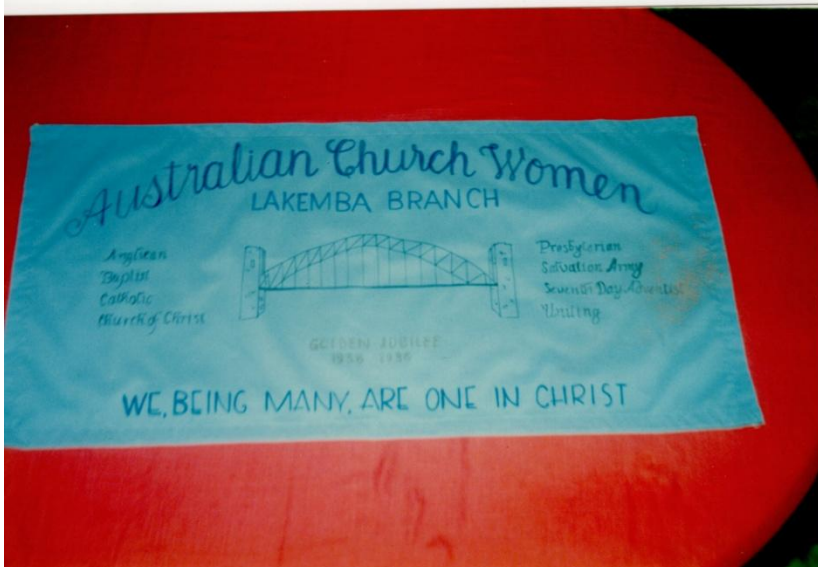 Australian Church Women
LAKEMBA BRANCH
Anglican
Baptist
Catholic
Church of Christ
Presbyterian
Salvation Army
Seventh Day Adventist
Uniting
GOLDEN JUBILEE
1936 1986
WE, BEING MANY, ARE ONE IN CHRIST